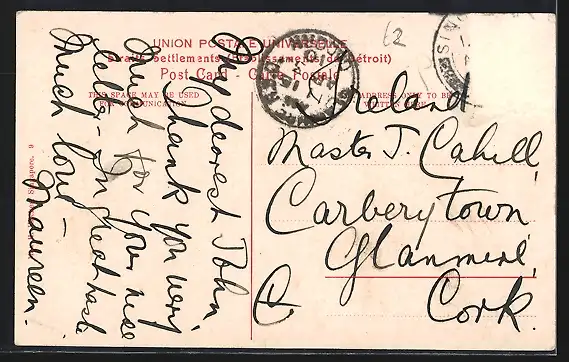 62
UNION POSTALE UNIVERSELLE
Straits Settlements (Etablissements du Détroit)
Post Card - Carte Postale
THIS SPACE MAY BE USED
FOR COMMUNICATION
ADDRESS ONLY TO BE
WRITTEN HERE
My dearest John,
Thank you very
much for your nice
letter - In great haste
Much love -
Maureen.
Ireland
Master J. Cahill,
Carberytown
Glanmire,
Co. Cork.
Singapore. 9